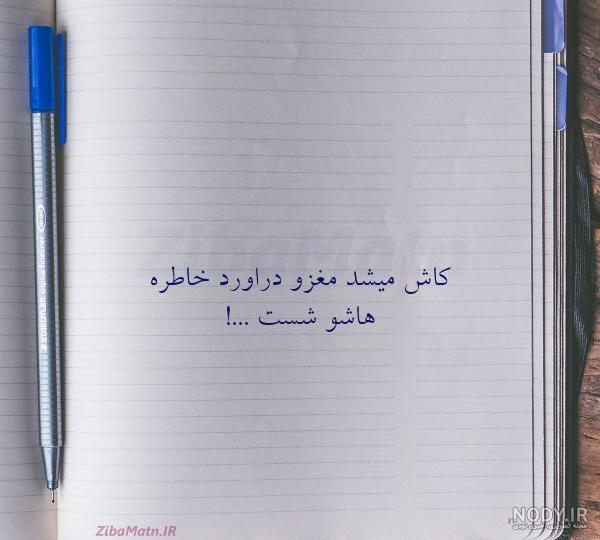 ZibaMatn
کاش میشد مغزو دراورد خاطره
هاشو شست ...!
ZibaMatn.IR
NODY.IR